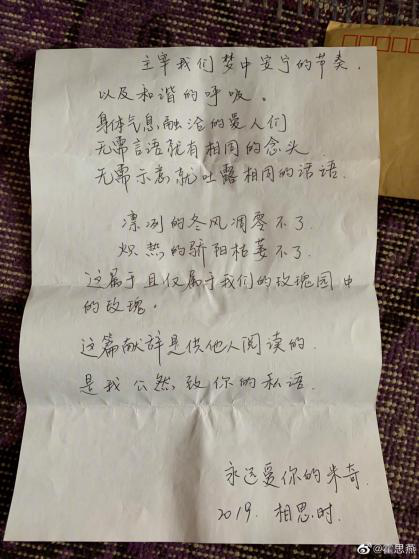 主宰我们梦中安宁的节奏.
以及和谐的呼吸。
身体气息融洽的爱人们
无需言语就有相同的念头
无需示意就吐露相同的话语.
凛冽的冬风凋零不了.
炽热的骄阳枯萎不了.
这属于且仅属于我们的玫瑰园中
的玫瑰。
这篇献辞是供他人阅读的.
是我公然致你的私语.
永远爱你的朱奇.
2019. 相思时.
@霍思燕